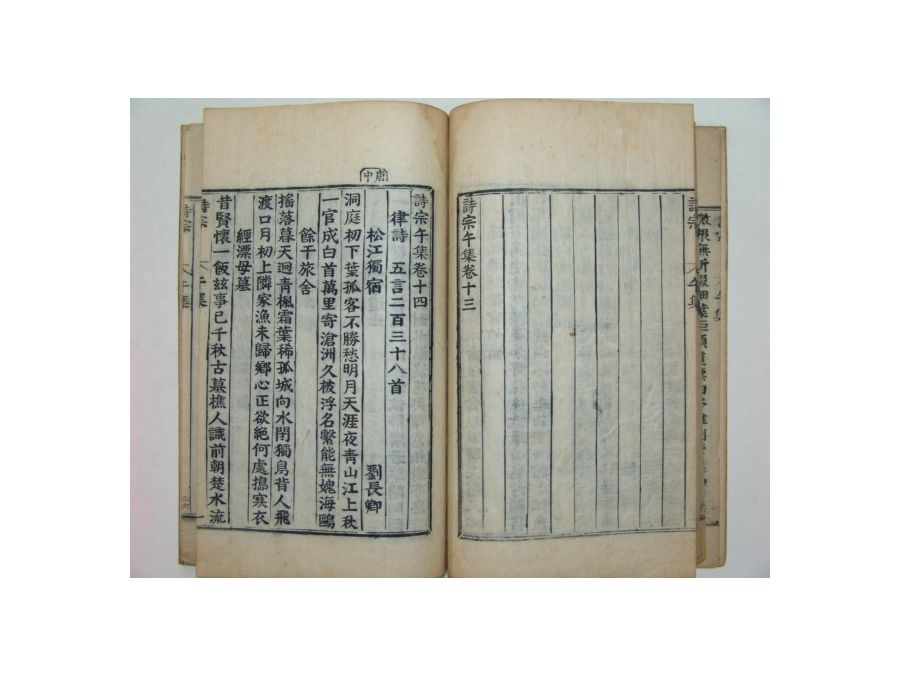 詩宗午集卷十三
中唐
詩宗午集卷十四
律詩 五言二百三十八首
松江獨宿 劉長卿
洞庭初下葉孤客不勝愁明月天涯夜青山江上秋
一官成白首萬里寄滄洲久被浮名繫能無媿海鷗
餘干旅舍
搖落暮天迥青楓霜葉稀孤城向水閉獨鳥背人飛
渡口月初上隣家漁未歸鄉心正欲絶何處搗寒衣
經漂母墓
昔賢懷一飯玆事已千秋古墓樵人識前朝楚水流